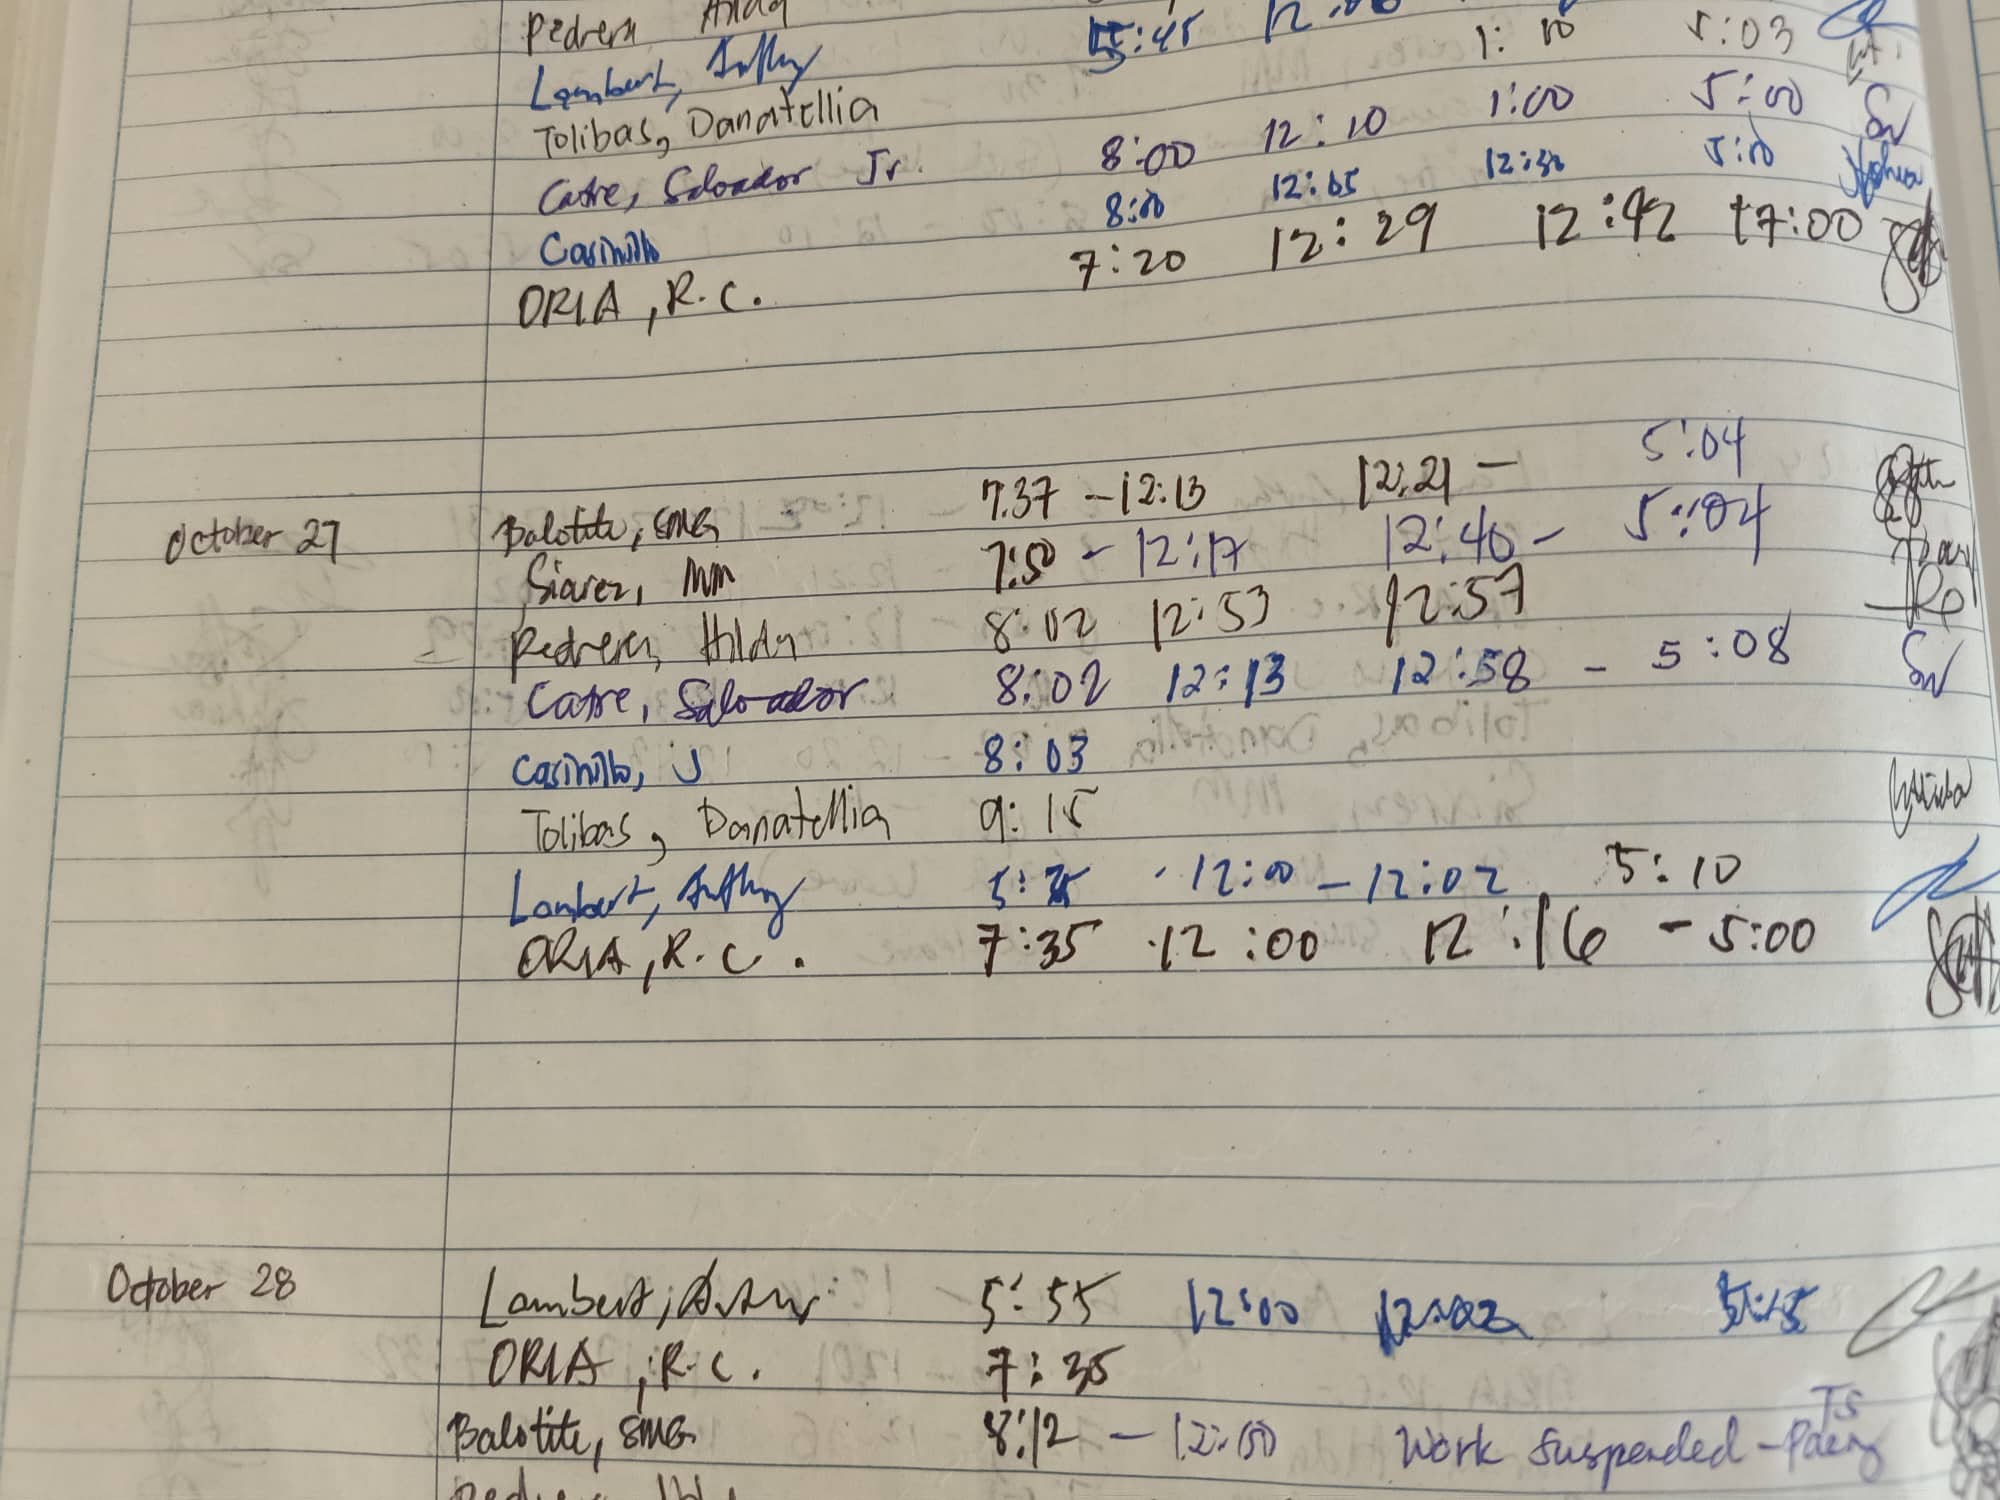 Pedrera Hilda 5:45
Lambert, Anthony 1:10 5:03
Tolibas, Danatellia 1:00 5:00
Catre, Salvador Jr. 8:00 12:10 12:30 5:10
Casinillo 8:00 12:05
ORIA, R.C. 7:20 12:29 12:42 17:00
October 27 Balotite, SMG 7:37 - 12:13 12:21 - 5:04
Siarez, MM 7:50 - 12:17 12:40 - 5:04
Pedrera, Hilda 8:02 12:53 12:57
Catre, Salvador 8:02 12:13 12:58 - 5:08
Casinillo, J 8:03
Tolibas, Danatellia 9:15
Lambert, Anthony 12:00 - 12:02 5:10
ORIA, R.C. 7:35 12:00 12:16 - 5:00
October 28 Lambert, 5:55 12:00 12:02 5:15
ORIA, R.C. 7:35
Balotite, SMG 8:12 - 12:00 Work Suspended - TS Paeng